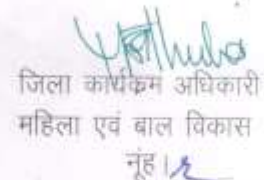 जिला कार्यक्रम अधिकारी
महिला एवं बाल विकास
नूंह।